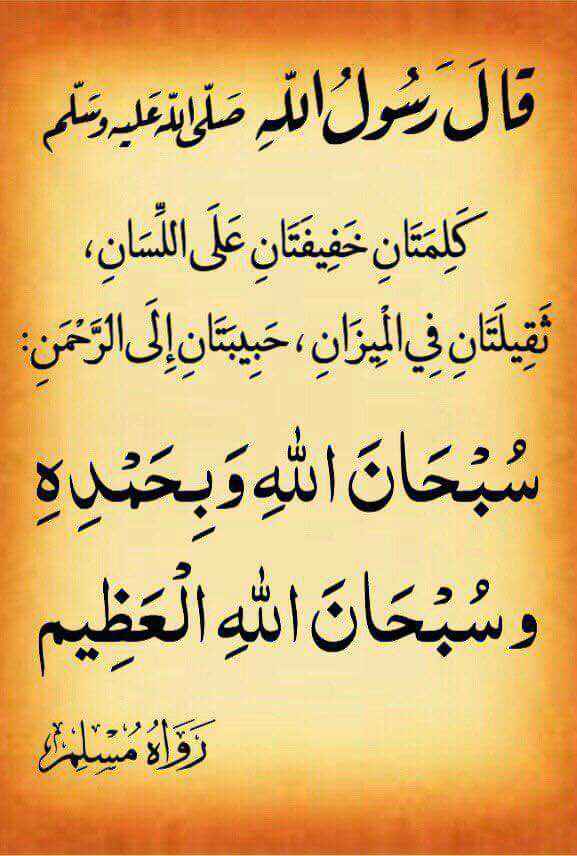 قَالَ رَسُولُ اللّٰهِ صَلّى اللّٰه عَليه وسَلّم
كَلِمَتَانِ خَفِيفَتَانِ عَلَى اللِّسَانِ،
ثَقِيلَتَانِ فِي الْمِيزَانِ، حَبِيبَتَانِ إِلَى الرَّحْمَنِ:
سُبْحَانَ اللهِ وَبِحَمْدِهِ
وسُبْحَانَ اللهِ الْعَظِيم
رَوَاهُ مُسْلِم